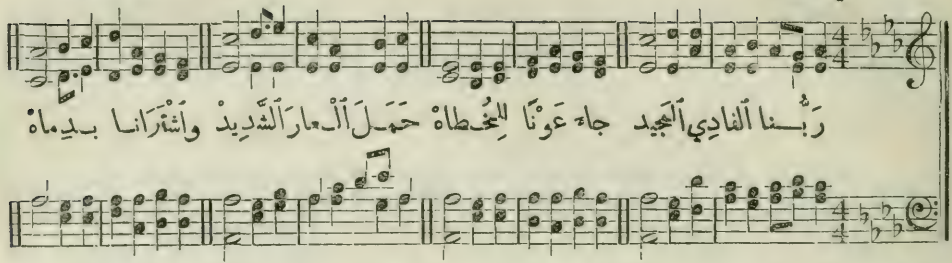 رَبُّـنا ٱلفادِي ٱلمجيد جاءَ عَوْنًا لِلْخُـطاهْ حَمَـلَ ٱلْـعارَ ٱلشَّدِيدْ وَٱشْتَرَانـا بِـدِماهْ